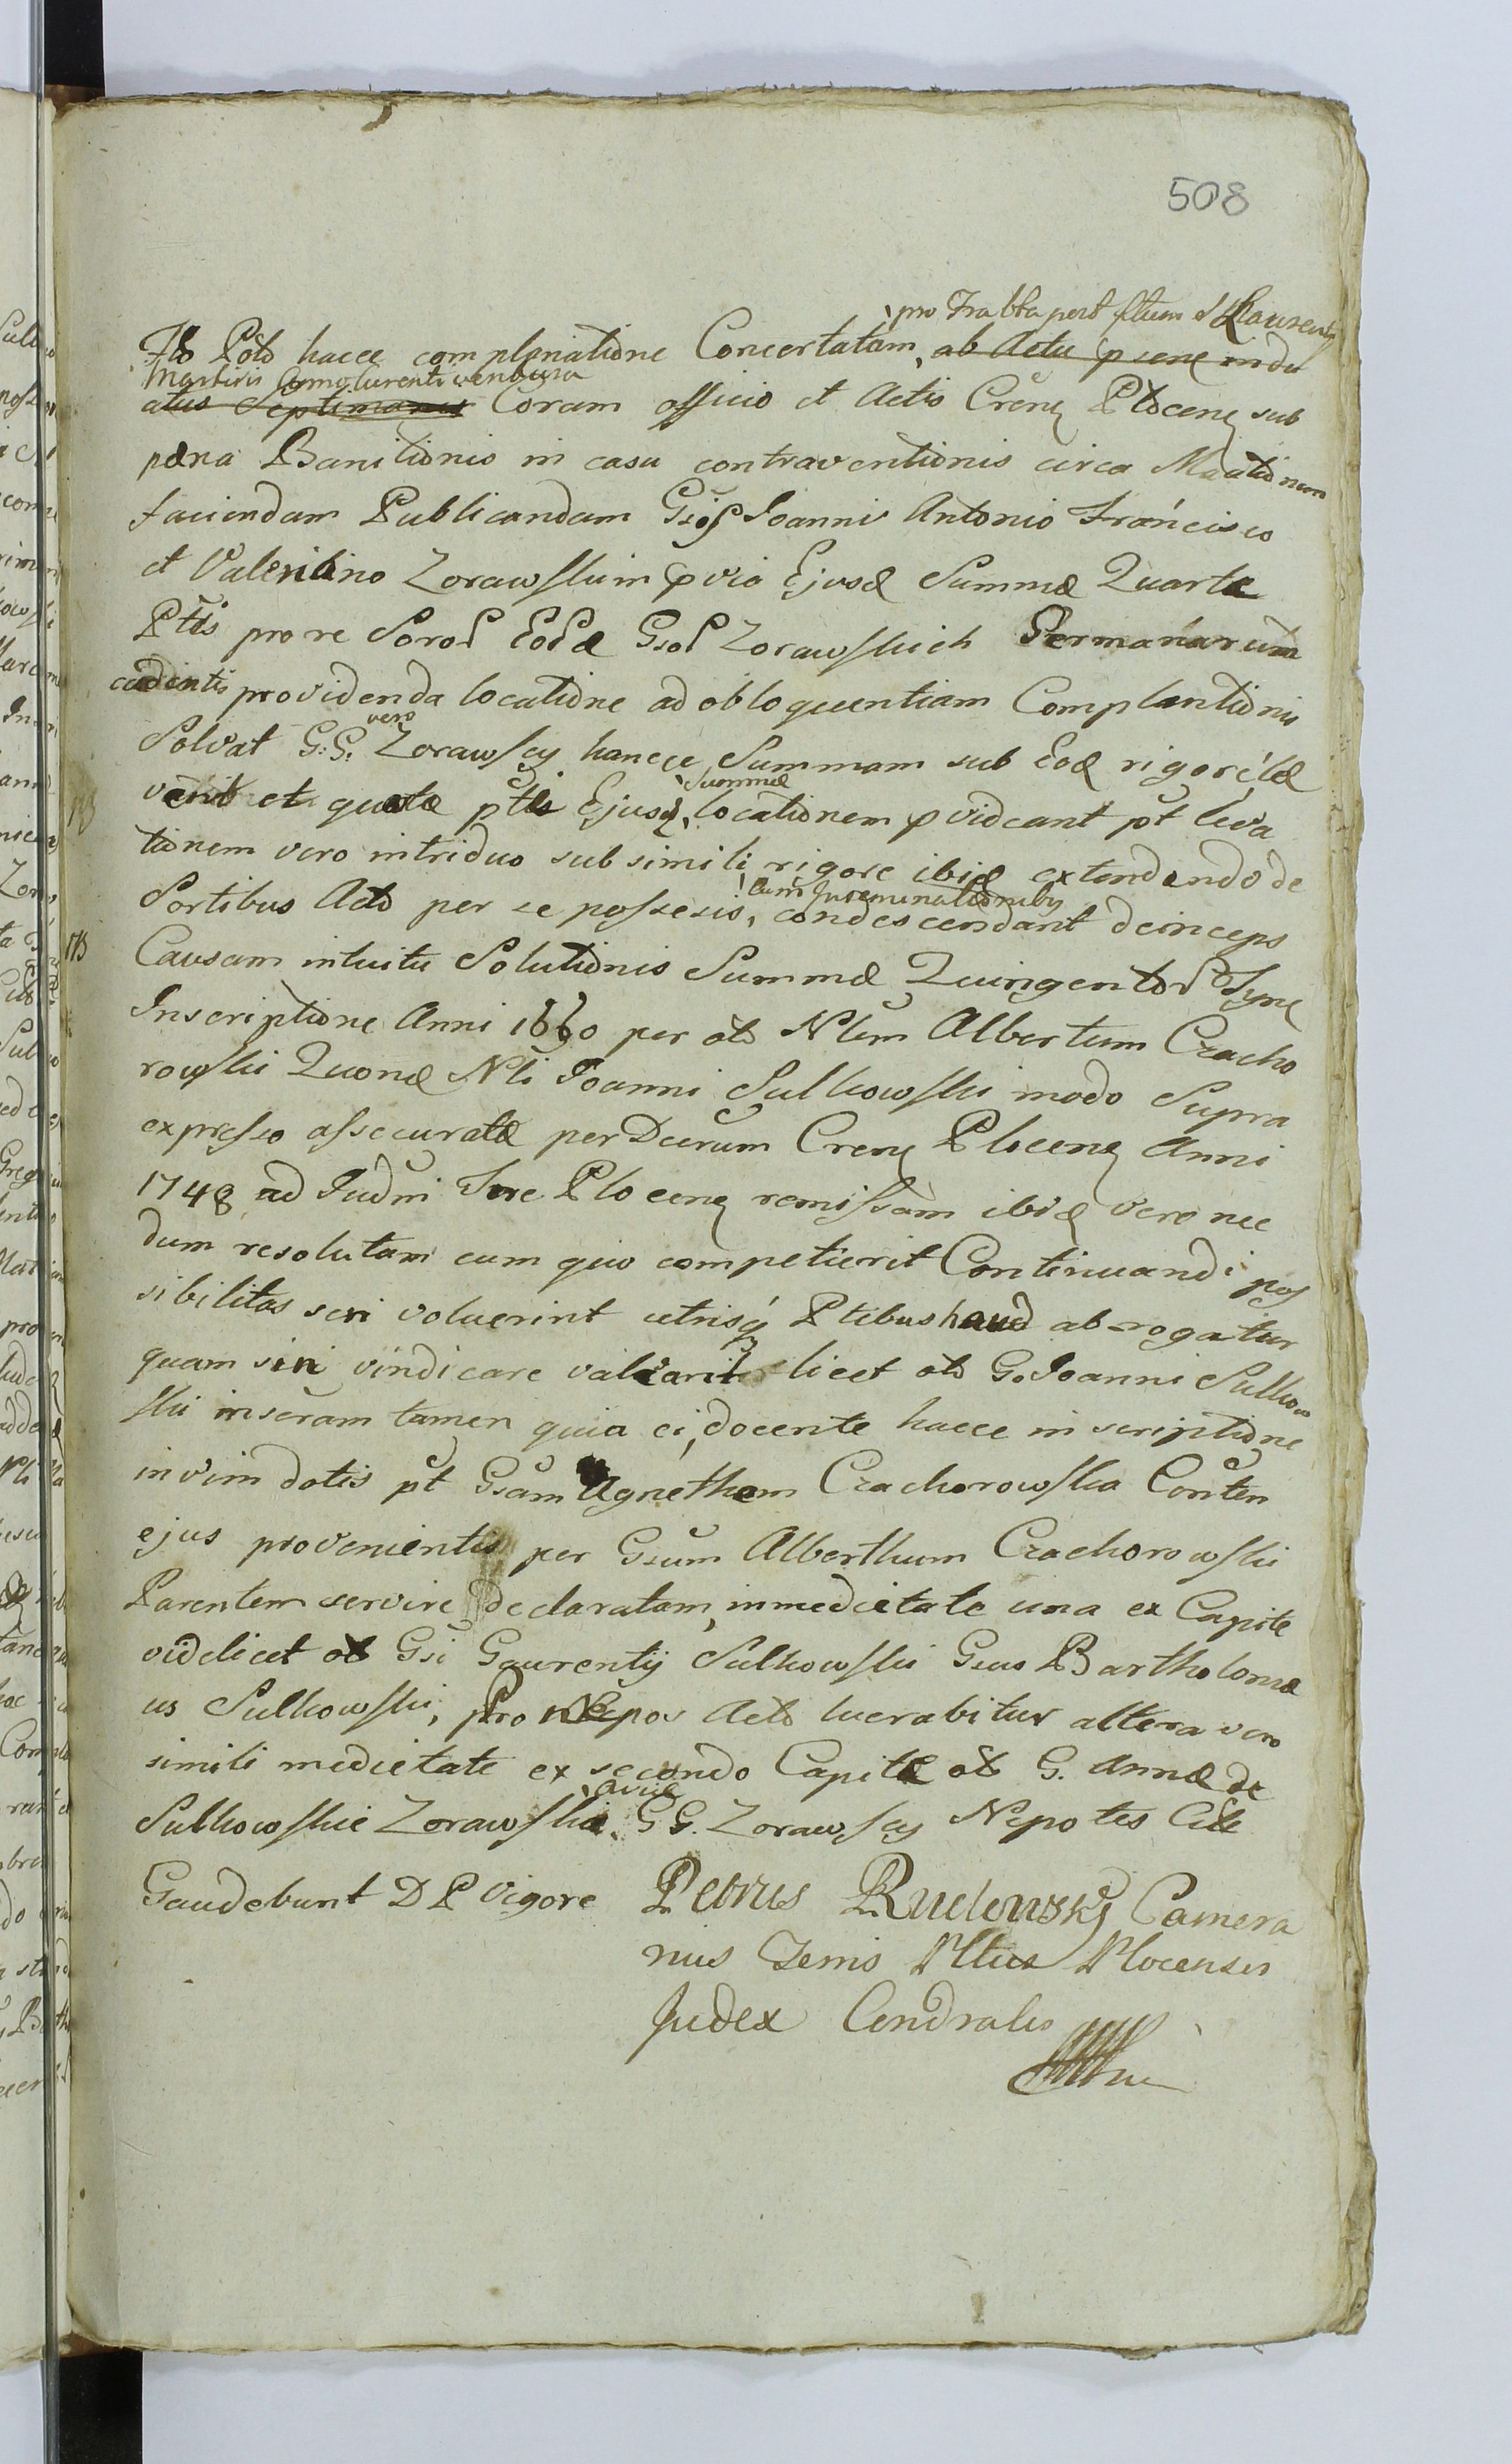 508
pro Fra bta post festum S Laurentij
Flo Pōło hacce complanatione Concertatam, ab Actu pseng indu
Martiris Anno currenti
atus Septimanis Coram officio et Actis Creng Płoceng sub
pæna Banitionis in casu contraventionis circa Maationem
faciendam Publicandam Gsis Joanni Antonio Francisco
et Valentino Zorawskim pvia Ejusd Summæ Quartæ
Ptis pro re Soror Eorđ Gsor Zorawskich Germanarum
cedentis providenda locatione ad obloquentiam Complantionis
vero
Solvat G.G. Zorawscy hancce Summam sub Eod rigore
Summæ
et quartæ ptis Ejusd, locationem pvideant pt leva
tionem vero intriduo sub simili rigore ibid extendendo de
cum Inseminationibus
Sortibus Acto per se possesis, condescendant deinceps
Causam intuitu Solutionis Summæ Quingentor Tyng
Inscriptione Anni 1660 per olo Nlem Albertum Czacho
rowski Quond Nli Joanni Sulkowski modo Supra
expresso assecuratæ per Dcrum Creng Płoceng Anni
1748 ad Judni Tere Płoceng remissam ibid vero nec
dum resolutam cum quo competierit Continuandi pos
sibilitas seri voluerint utrisq Ptibus haud abrogatur
quam sivi vindicare valeant licet olo G. Joanni Sulkow
ski inseram tamen quia ei, docente hacce inscriptione
invim dotis pt Gsam Agnetham Czachorowska Conten
ejus provenientis per Gsum Alberthum Czachorowski
Parentem servire declaratam, inmedietate una ex Capite
videlicet ol Gsi Gaurentij Sulkowski Gsus Bartholomæ
us Sulkowski, pro Nepos Acto lucrabitur altera vero
simili medietate ex secundo Capite ol G. Annæ de
aviæ
Sulkowskie Zorawska, GG. Zorawscy Nepotes
Gaudebunt D P Vigore Petrus Rudowski Camera
rius Plocensis
Judex